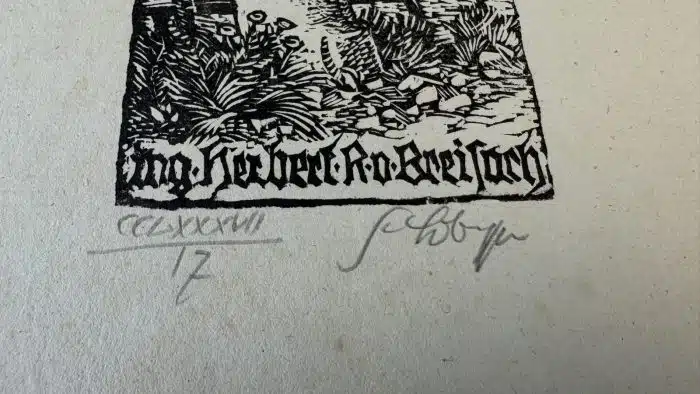 ing. Herbert. R. v. Breisach
CCLXXXVII
17